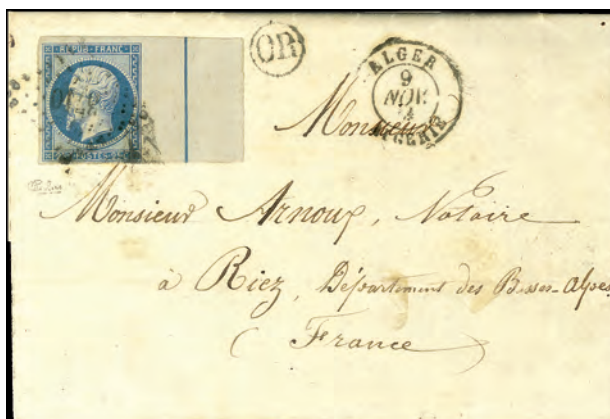 REPUB. FRANC.
POSTES
OR
ALGER
9
NOV.
ALGERIE
Monsieur
Monsieur Arnoux, Notaire
à Riez, Département des Basses-Alpes
( France )